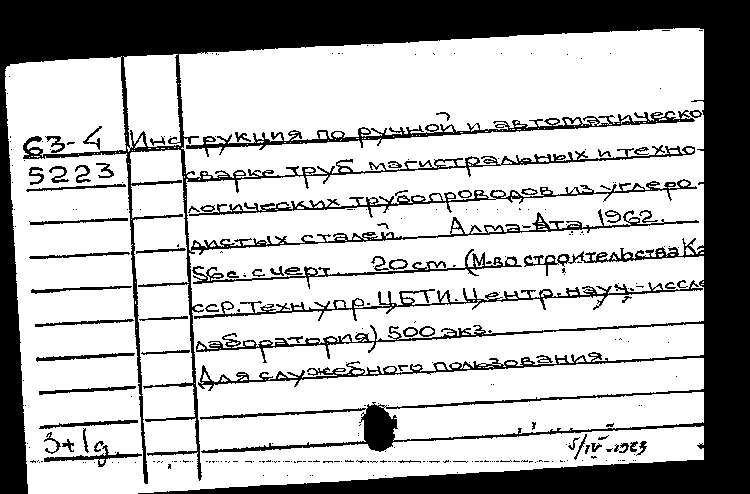 63-4 Инструкция по ручной и автоматической
5223 сварке труб магистральных и техно-
логических трубопроводов из углеро-
дистых сталей. Алма-Ата, 1962.
56с. с черт. 20 cm. (М-во строительства Ка
сср. Техн. упр. ЦБТИ. Центр. науч.-иссле
лаборатория). 500 экз.
Для служебного пользования.
3+1д.
5/IV-1963